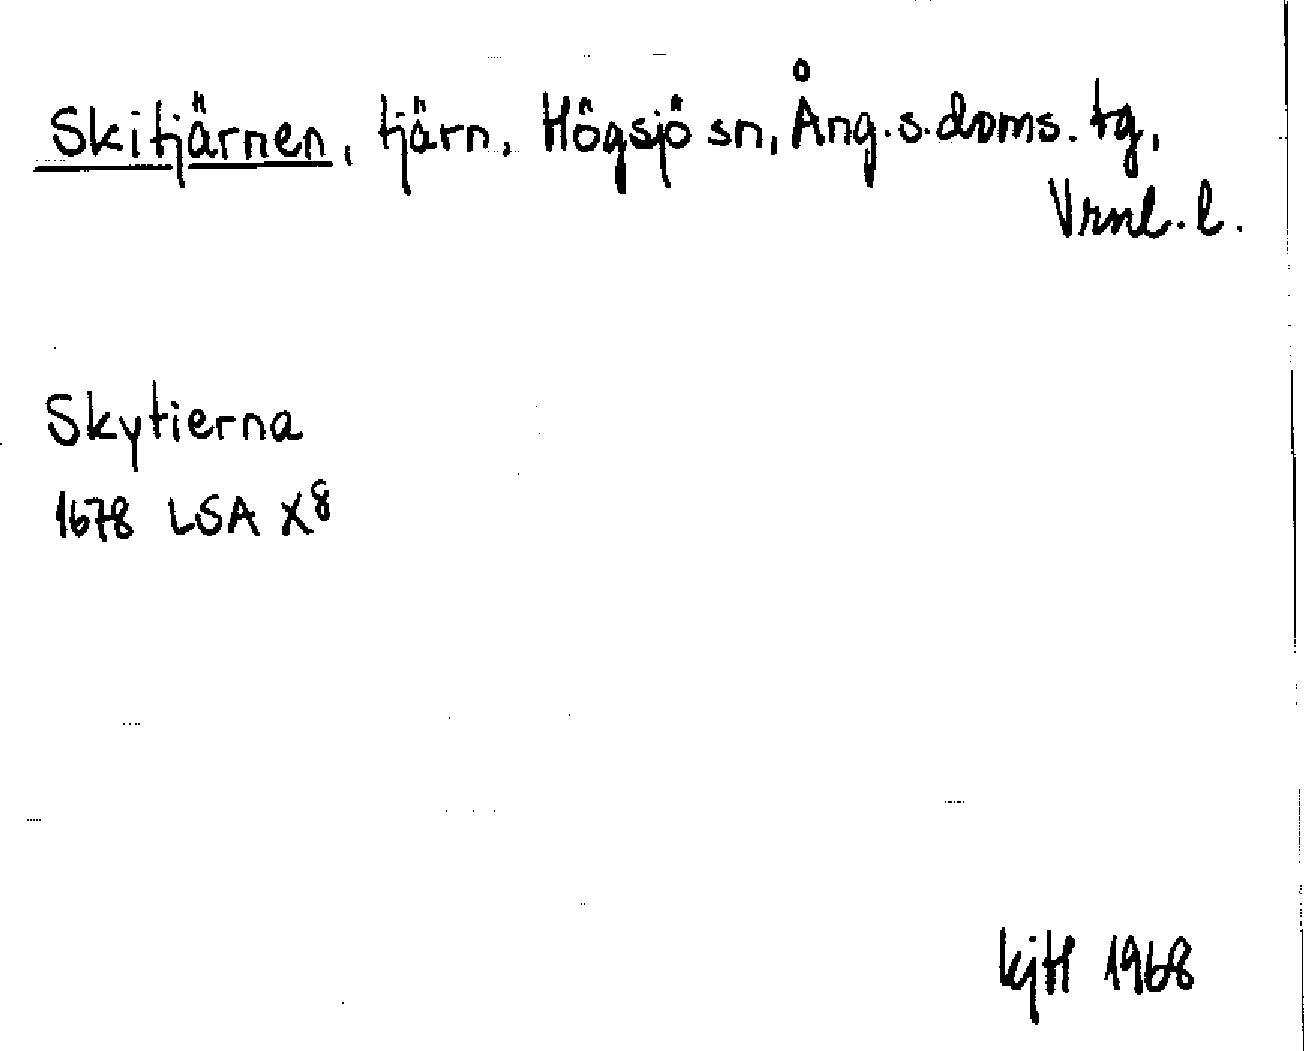 Skitjärnen, tjärn, Högsjö sn, Ång.s.doms.tg,
Vrnl.l.
Skytierna
1678 LSA X8
kjH 1968